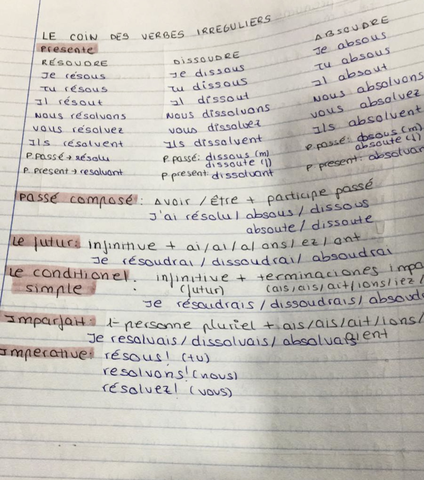 LE COIN DES VERBES IRREGULIERS
Presente
RÉSOUDRE DISSOUDRE ABSOUDRE
Je résous Je dissous Je absous
Tu résous Tu dissous Tu absous
Il résout Il dissout Il absout
Nous résolvons Nous dissolvons Nous absolvons
vous résolvez vous dissolvez vous absolvez
Ils résolvent Ils dissolvent Ils absolvent
P. passé → résolu P. passé: dissous (m) P. passé: absous (m)
dissoute (f) absoute (f)
P. present → resolvant P present: dissolvant P. present: absolvan
Passé composé: Avoir / être + participe passé
J'ai résolu / absous / dissous
absoute / dissoute
Le futur: Infinitive + ai/as/a/ons/ez/ont
Je résoudrai / dissoudrai / absoudrai
Le conditionel simple: infinitive + terminaciones impa
(futur) (ais/ais/ait/ions/iez/
Je résoudrais / dissoudrais / absoud
Imparfait: 1-personne pluriel + ais/ais/ait/ions/
Je resolvais / dissolvais / absolvais
ient
Imperative: résous! (tu)
resolvons! (nous)
résolvez! (vous)